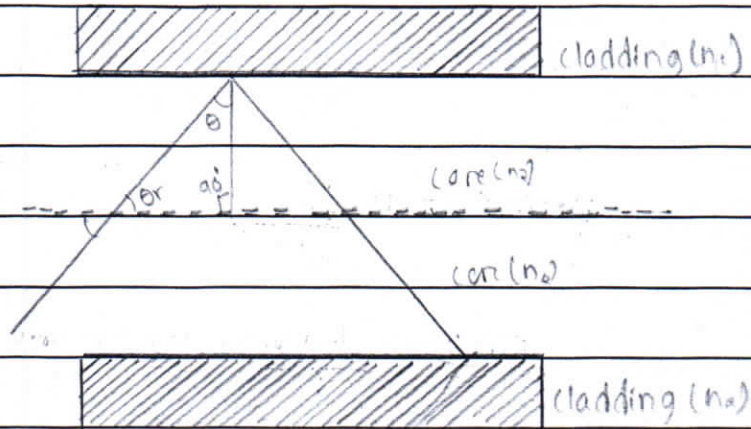 cladding (n₁)
θ
core (n₂)
θr
90°
core (n₂)
cladding (n₂)